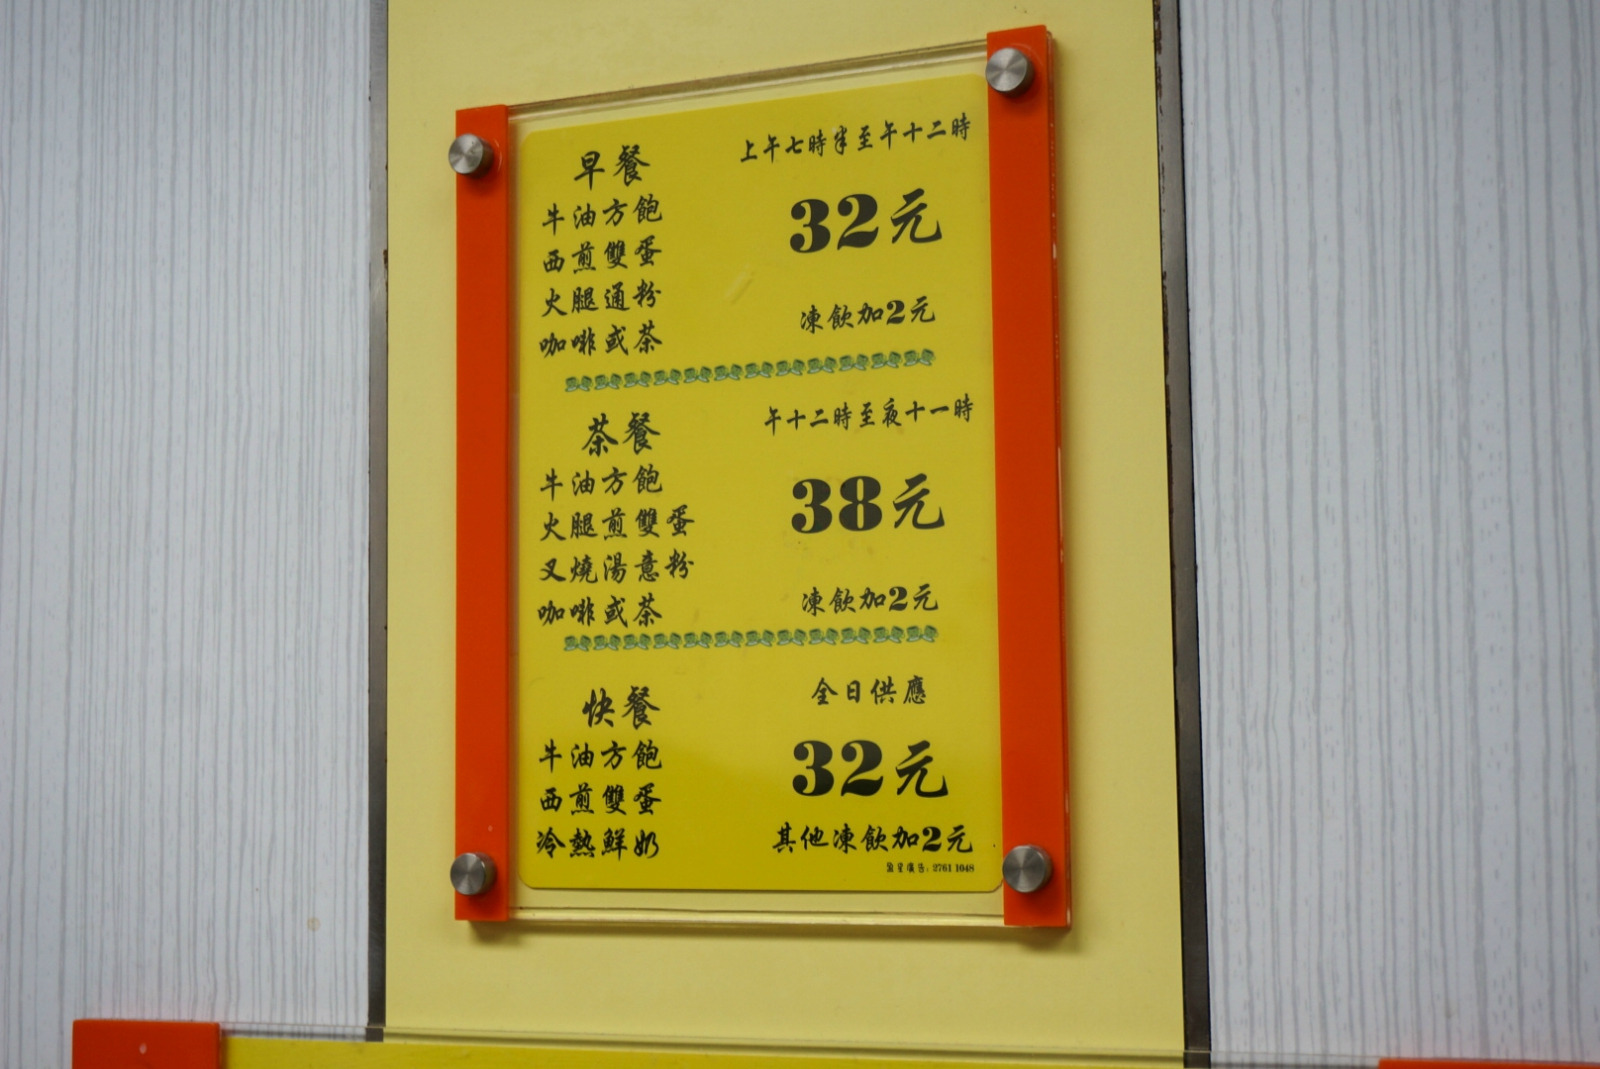 早餐
上午七時半至午十二時
牛油方飽
西煎雙蛋
火腿通粉
咖啡或茶
32元
凍飲加2元
茶餐
午十二時至夜十一時
牛油方飽
火腿煎雙蛋
叉燒湯意粉
咖啡或茶
38元
凍飲加2元
快餐
全日供應
牛油方飽
西煎雙蛋
冷熱鮮奶
32元
其他凍飲加2元
星廣告：2761 1048